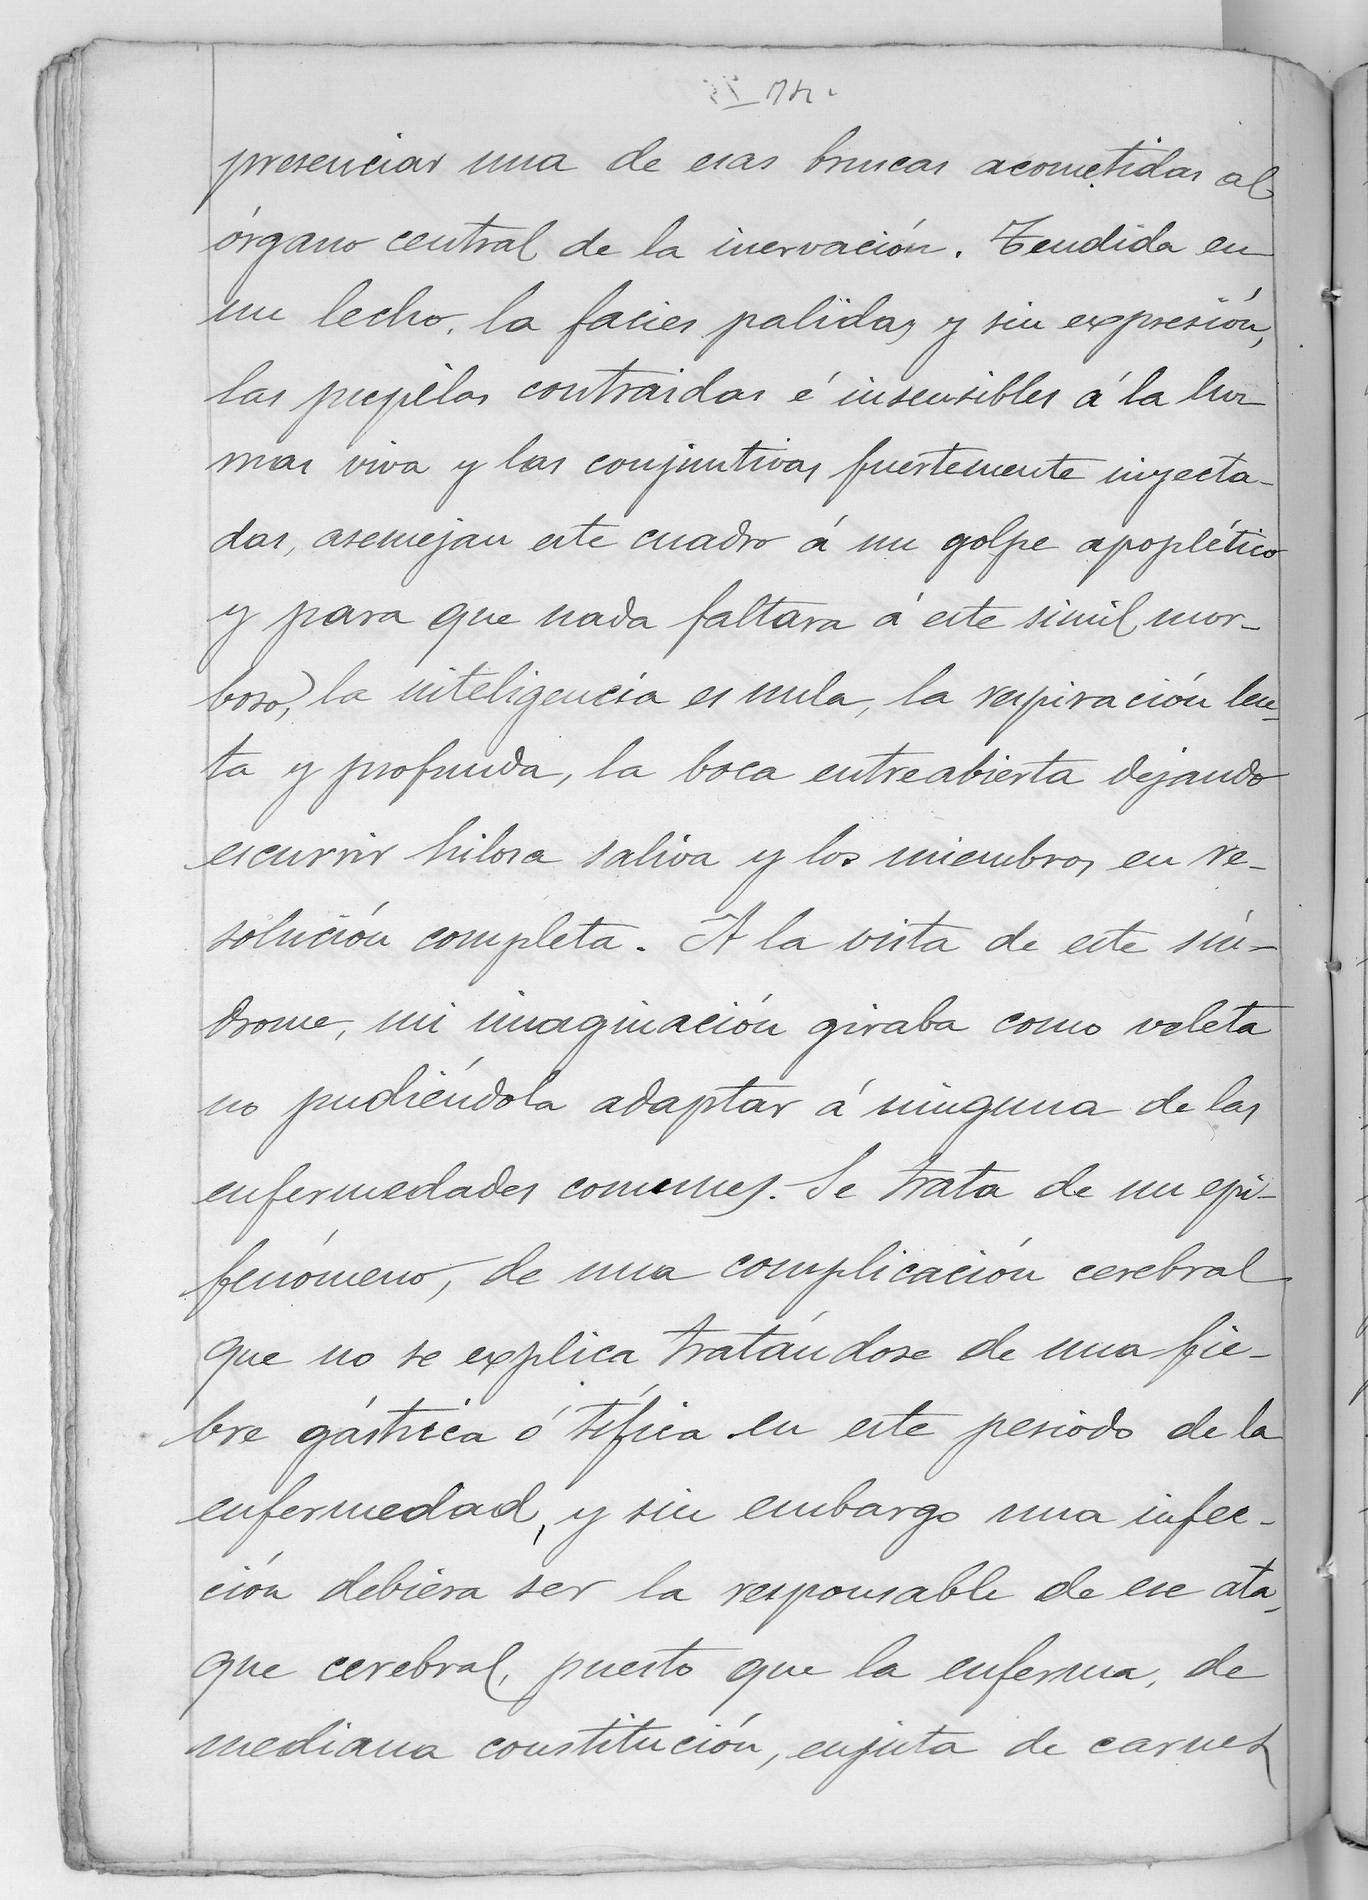 presenciar una de esas bruscas acometidas al
órgano central de la inervación. Tendida en
un lecho, la facies palida, y sin expresión,
las pupilas contraidas é insensibles á la luz
mas viva y las conjuntivas fuertemente inyecta-
das, asemejan este cuadro á un golpe apoplético
y para que nada faltara á este simil mor-
boso, la inteligencia es nula, la respiración len-
ta y profunda, la boca entreabierta dejando
escurrir hilosa saliva y los miembros en re-
solución completa. A la vista de este sín-
drome, mi imaginación giraba como veleta
no pudiéndola adaptar á ninguna de las
enfermedades comunes. Se trata de un epi-
fenómeno, de una complicación cerebral
que no se explica tratándose de una fie-
bre gástrica ó tífica en este periodo de la
enfermedad, y sin embargo una infec-
ción debiera ser la responsable de ese ata-
que cerebral, puesto que la enferma, de
mediana constitución, enjuta de carnes